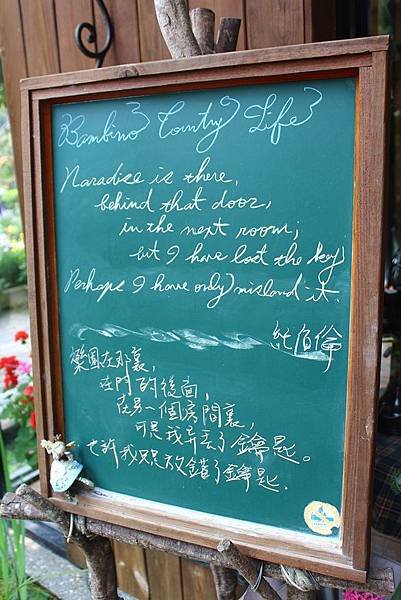 Bambino Country Life
Paradise is there,
behind that door,
in the next room;
but I have lost the key
Perhaps I have only mislaid it.
紀伯倫
樂園在那裏，
在門的後面，
在另一個房間裏，
可是我弄丟了鑰匙。
也許我只是放錯了鑰匙．